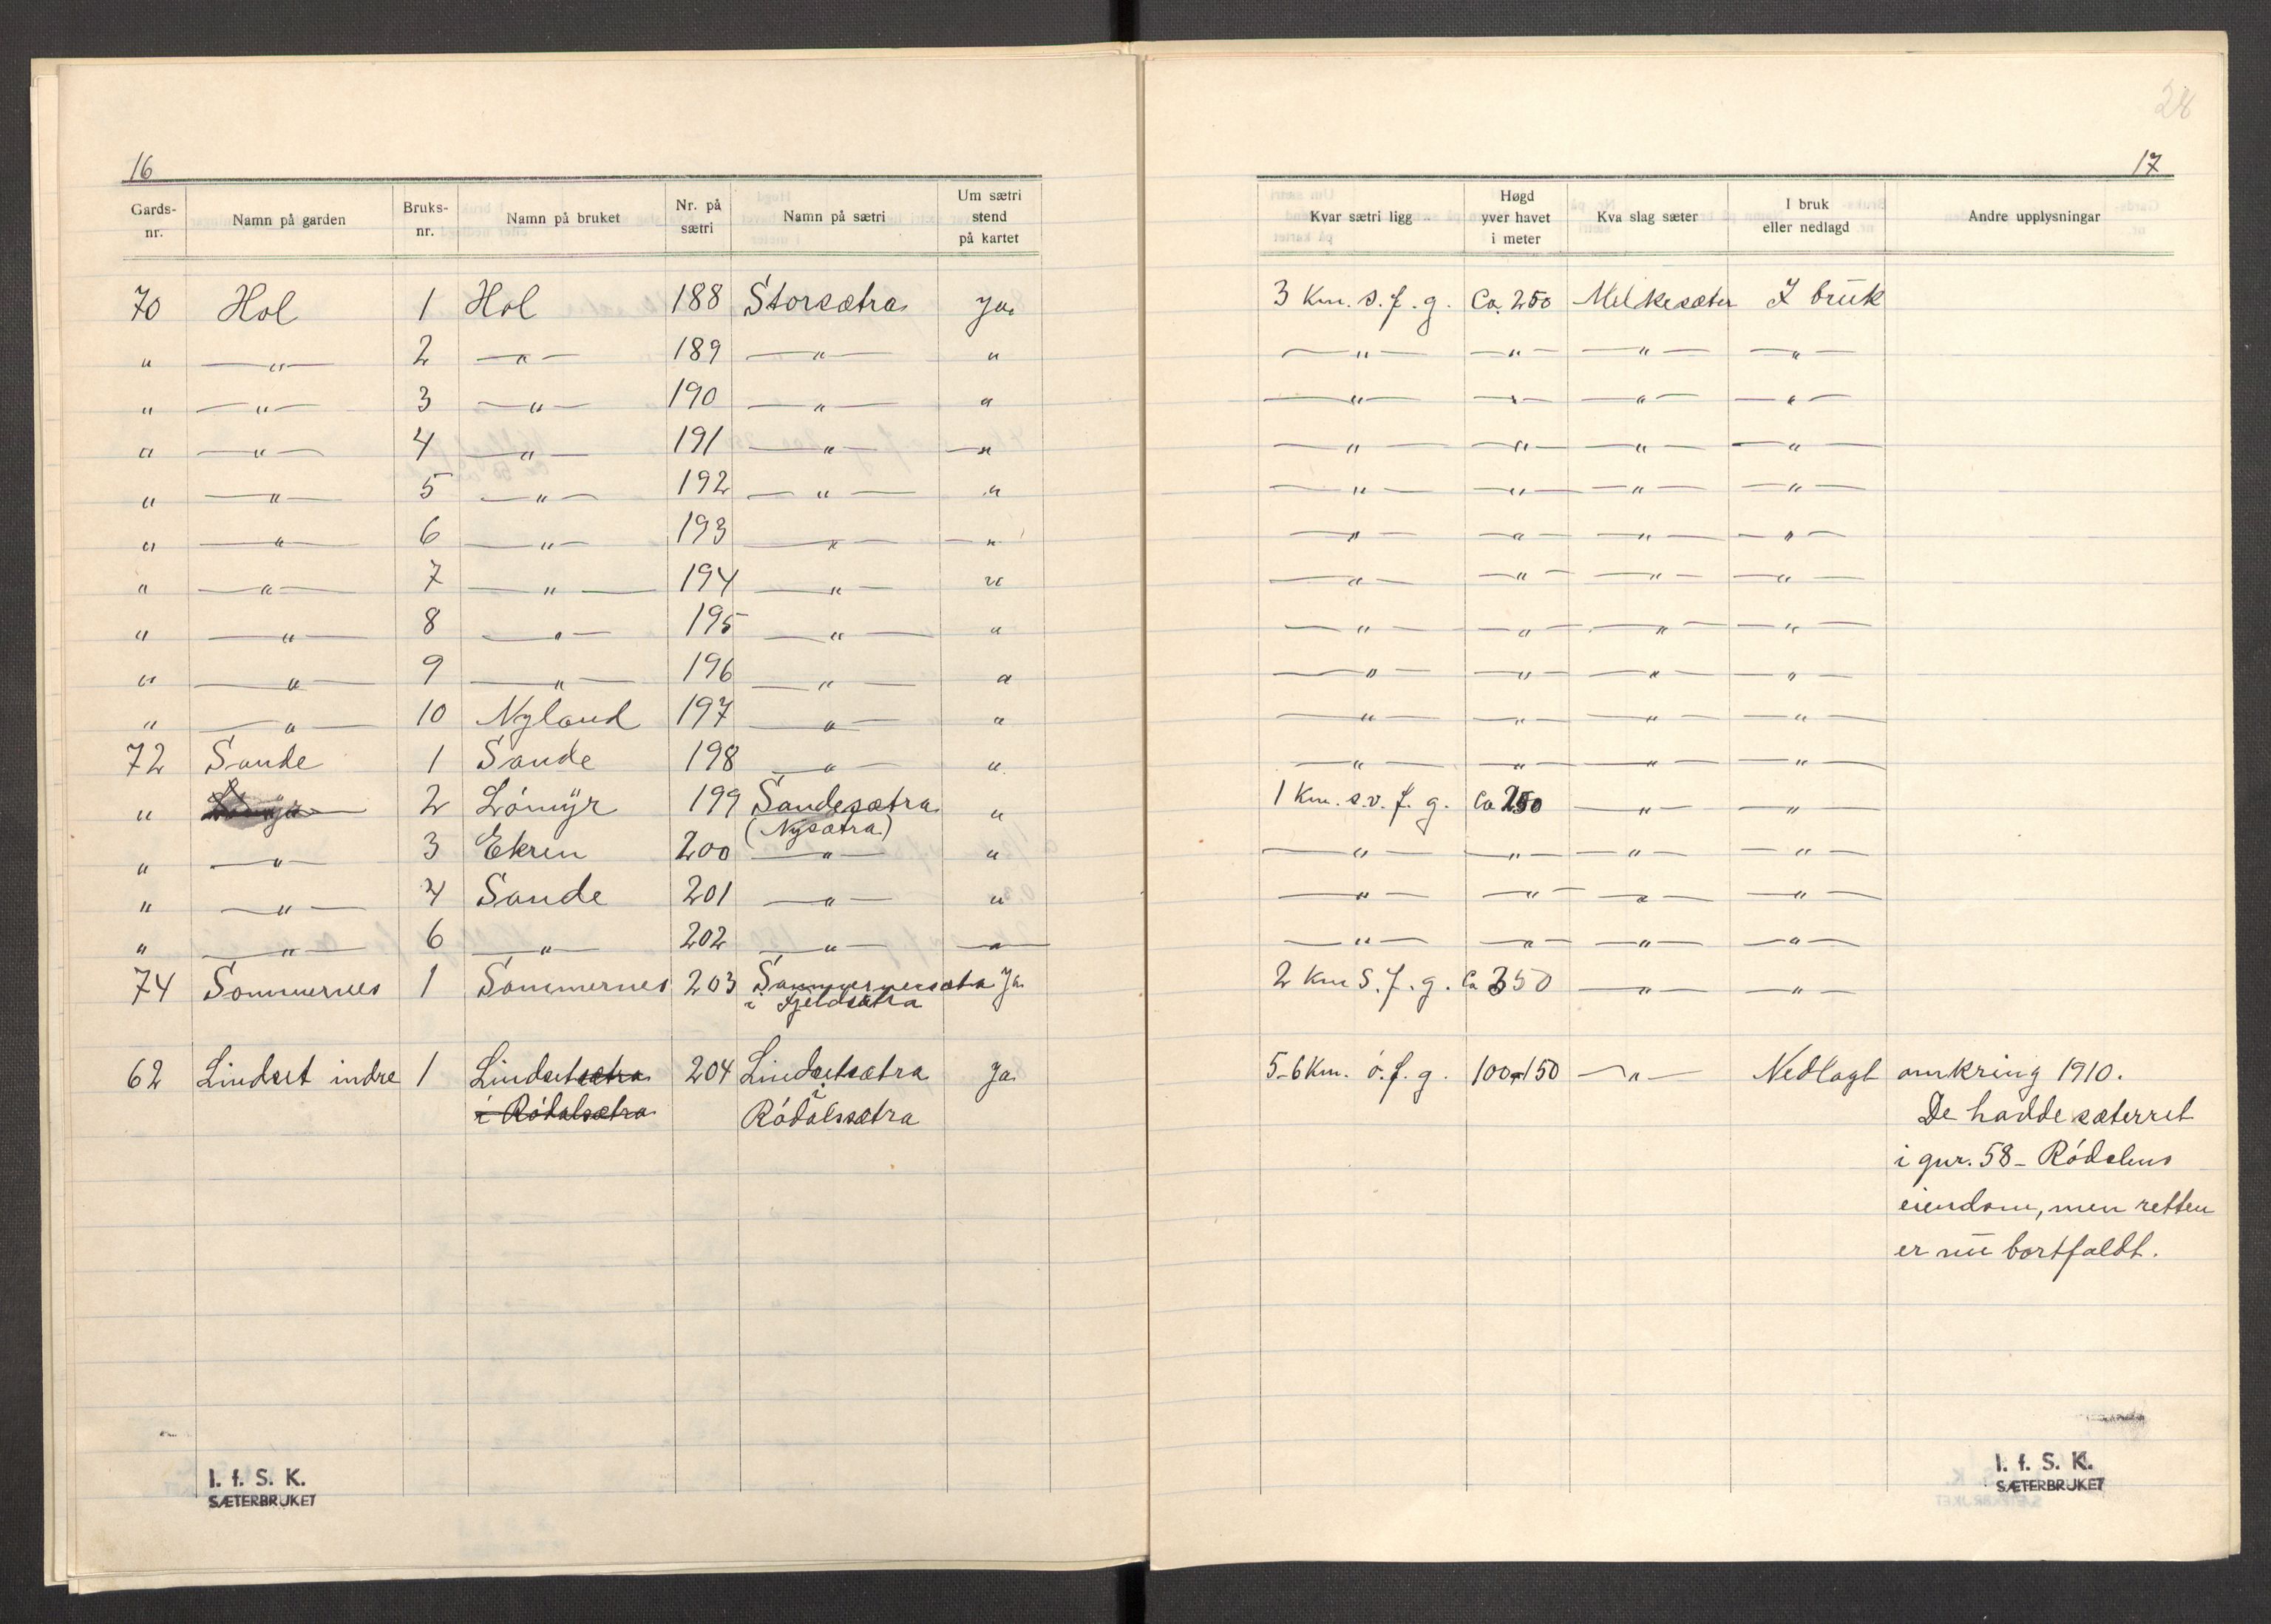 28
16
17
Gards-nr. Namn på garden Bruks-nr. Namn på bruket Nr. på sætri Namn på sætri Um sætri stend på kartet Kvar sætri ligg Høgd yver havet i meter Kva slag sæter I bruk eller nedlagd Andre upplysningar
70 Hol 1 Hol 188 Storsætra Ja 3 Km. s.f.g. Ca. 250 Melkesæter I bruk
" —"— 2 —"— 189 —"— " —"— —"— —"— —"—
" —"— 3 —"— 190 —"— " —"— —"— —"— —"—
" —"— 4 —"— 191 —"— —" —"— —"— —"— —"—
" —"— 5 —"— 192 —"— " —"— —"— —"— —"—
" —"— 6 —"— 193 —"— —" —"— —"— —"— —"—
" —"— 7 —"— 194 —"— " —"— —"— —"— —"—
" —"— 8 —"— 195 —"— " —"— —"— —"— —"—
" —"— 9 —"— 196 —"— " —"— —"— —"— —"—
" —"— 10 Nyland 197 —"— " —"— —"— —"— —"—
72 Sande 1 Sande 198 —"— " —"— —"— —"— —"—
" 2 Lómyr 199 Sandesætra " 1 Km. s.v.f.g. Ca 250 —"— —"—
(Nysætra)
" —"— 3 Ekren 200 —"— " —"— —"— —"— —"—
" —"— 4 Sande 201 —"— " —"— —"— —"— —"—
" —"— 6 —"— 202 —"— —"— —"— —"— —"— —"—
74 Sommernes 1 Sommernes 203 Sommernessætra Ja 2 Km S.f.g. Ca 350 —"— —"—
i Fjeldsætra
62 Lindset indre 1 Lindsetsætra 204 Lindsetsætra Ja 5-6 Km. ó.f.g. 100-150 —"— Nedlagt omkring 1910.
i Ródalsætra i Ródalssætra De hadde sæterret
i gnr. 58 - Ródalens
eiendom, men retten
er nu bortfaldt.
I. f. S. K.
SÆTERBRUKET
I. f. S. K.
SÆTERBRUKET